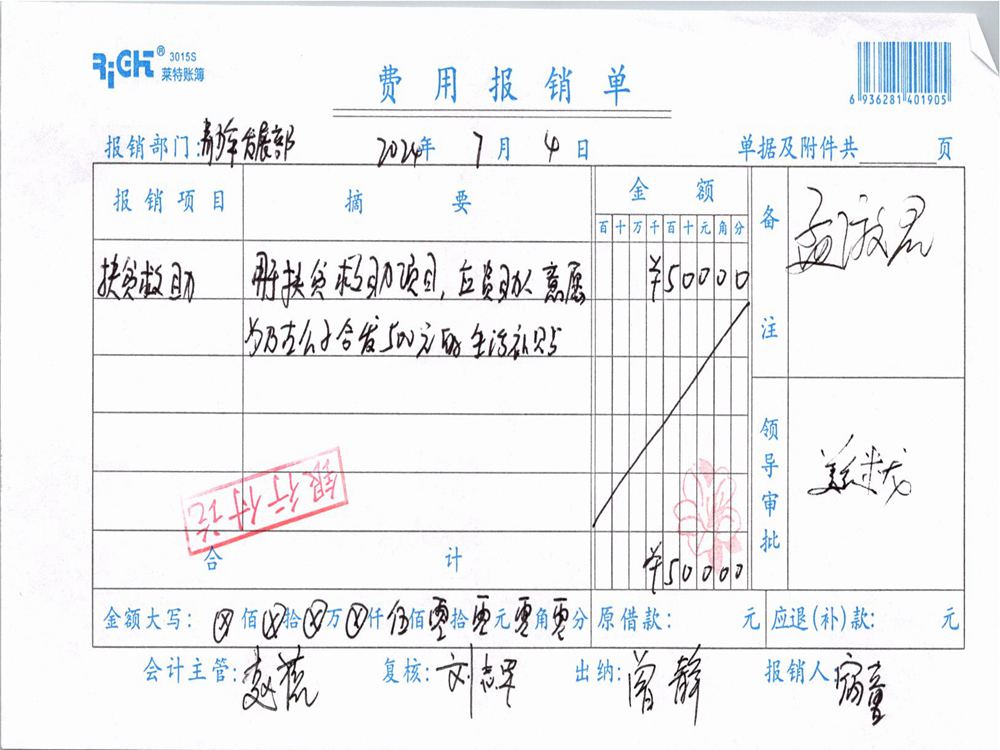 RiGHT® 3015S
莱特账簿
费用报销单
6 936281 401905
报销部门:青年发展部 2024年 7月 4日 单据及附件共 页
报销项目 摘要 金额 备注
百十万千百十元角分
扶贫救助 用于扶贫救助项目,应资助人意愿 ¥50000
为 发500元的生活补贴
银行付讫
合计 ¥50000
领导审批
金额大写:ⓧ佰ⓧ拾ⓧ万ⓧ仟伍佰零拾零元零角零分 原借款: 元 应退(补)款: 元
会计主管: 复核:刘志军 出纳:曾静 报销人